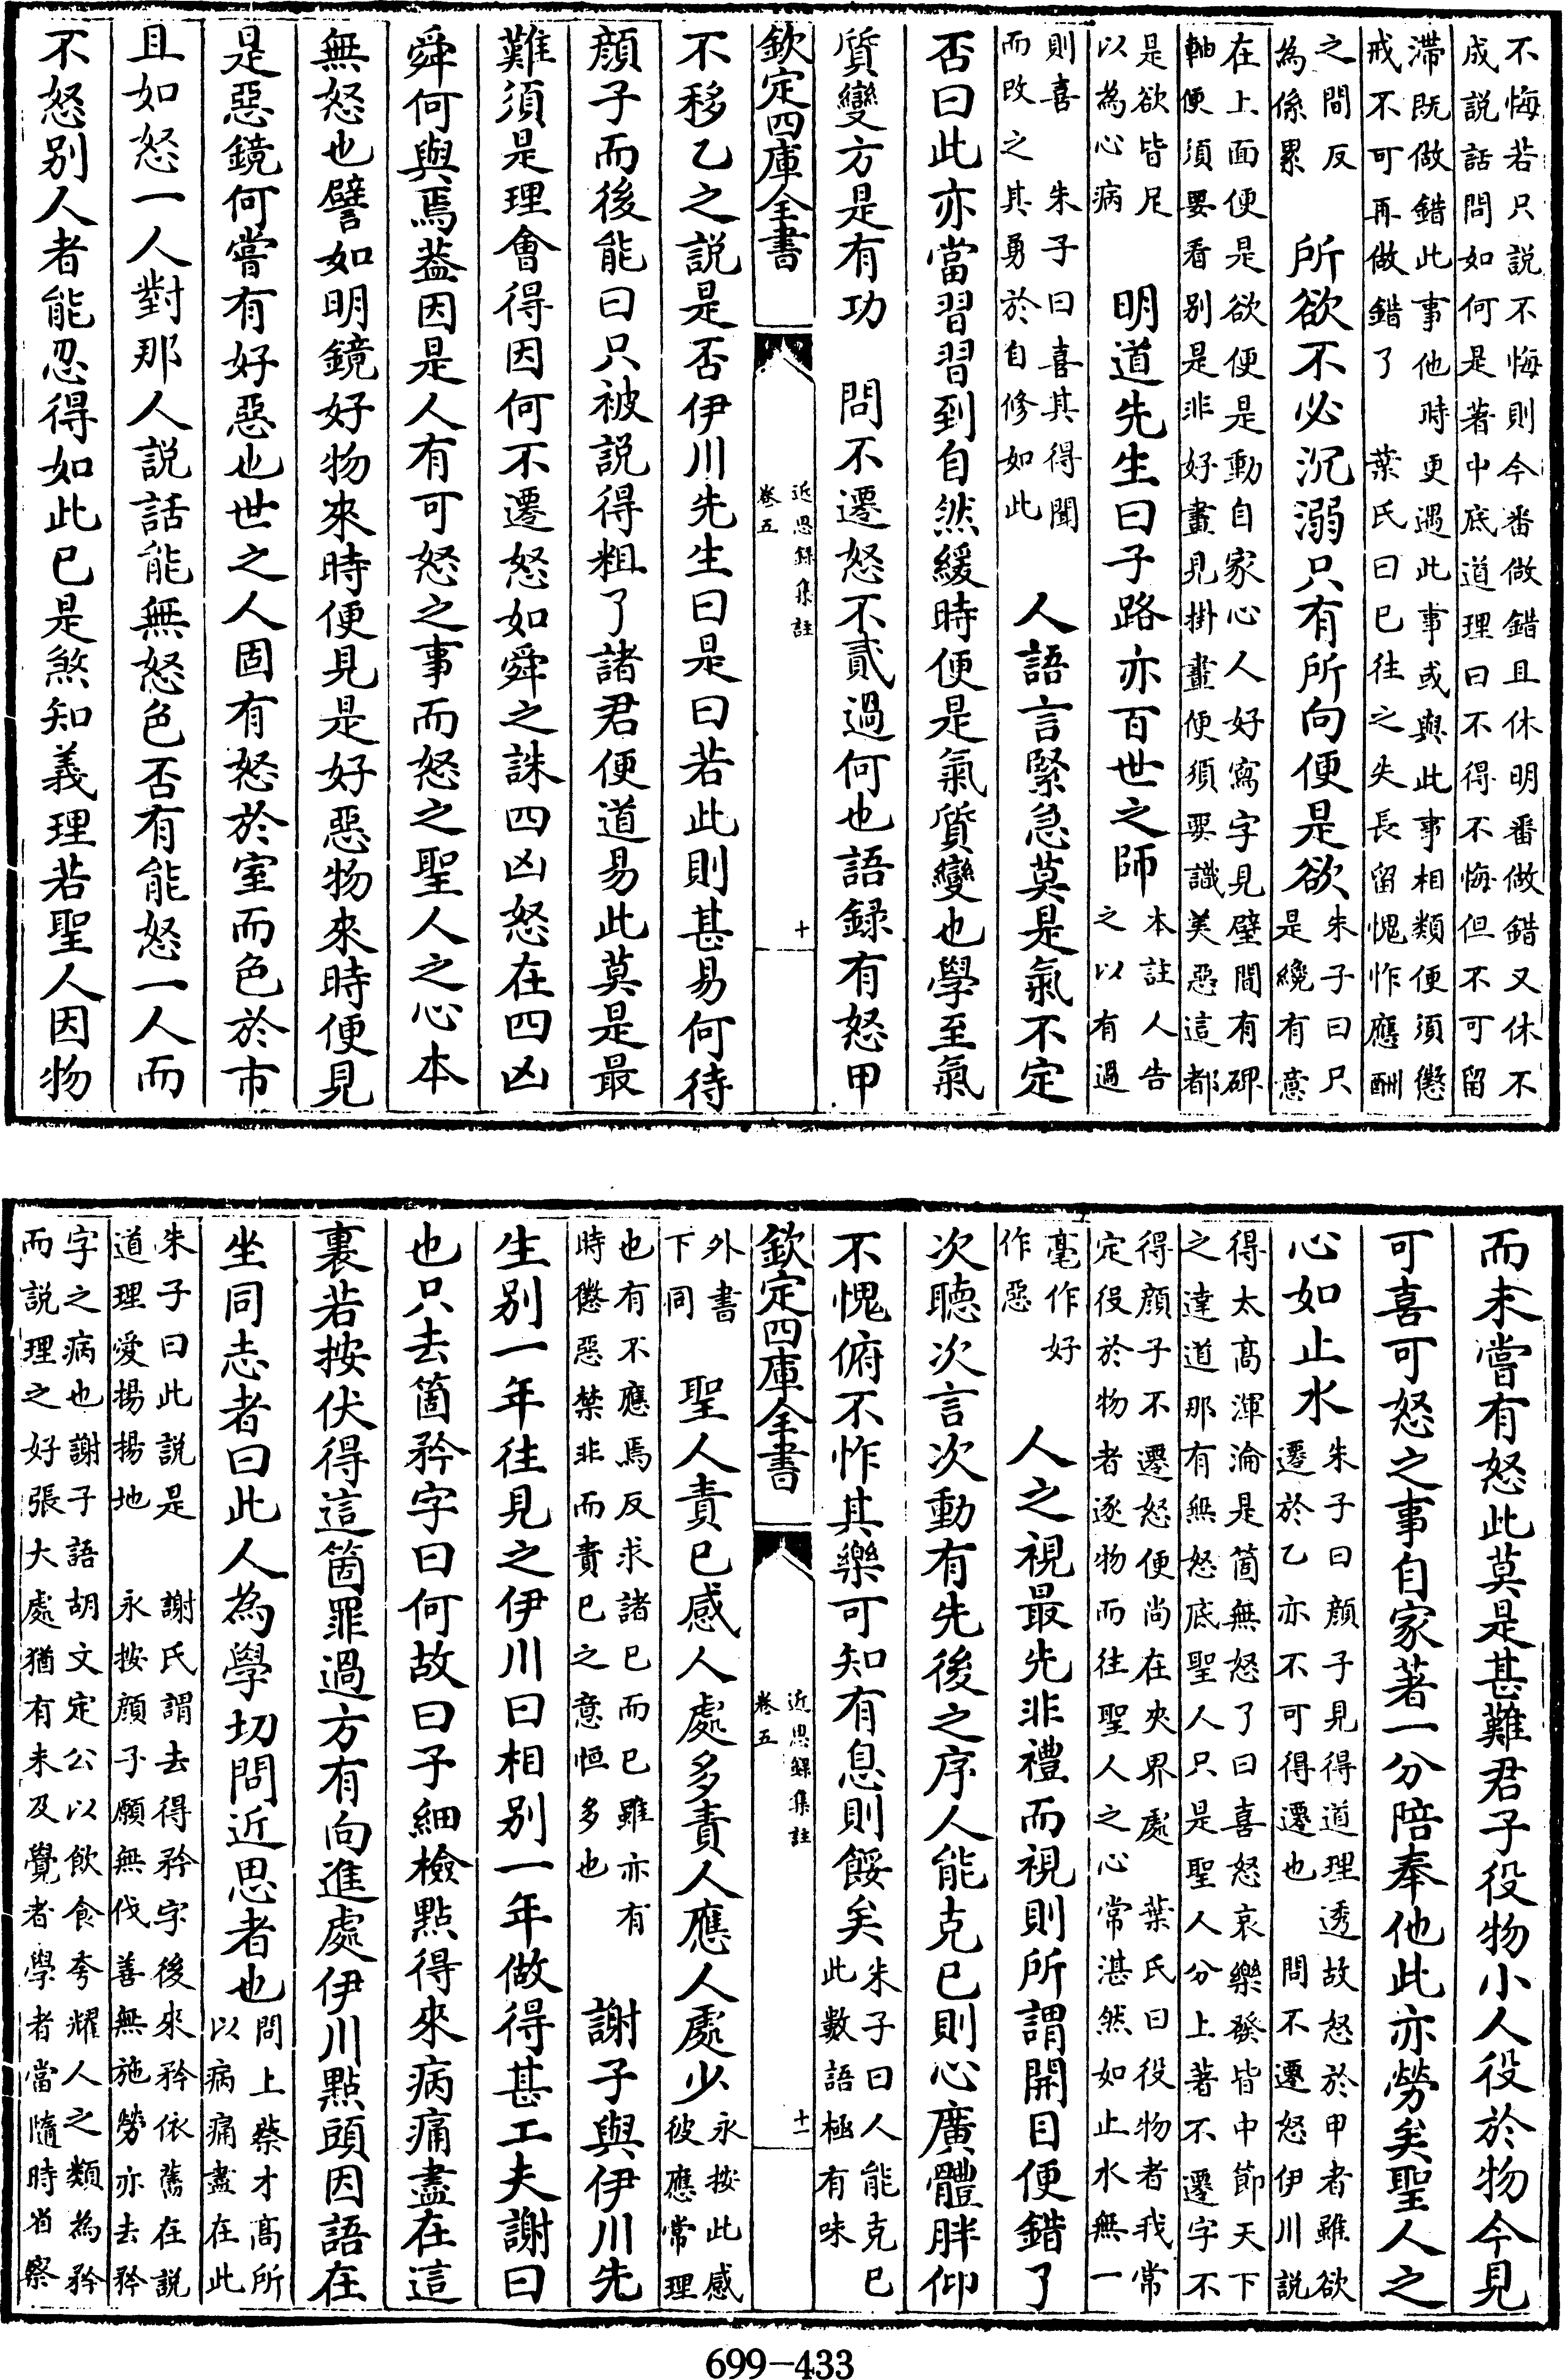 不悔若只説不悔則今番做錯且休明番做錯又休不
成説話問如何是著中底道理曰不得不悔但不可留
滯既做錯此事他時更遇此事或與此事相類便須懲
戒不可再做錯了　葉氏曰已往之失長留愧怍應酬
之間反
為係累
所欲不必沉溺只有所向便是欲
朱子曰只
是纔有意
在上面便是欲便是動自家心人好寫字見壁間有碑
軸便須要看别是非好畫見掛畫便須要識美惡這都
是欲皆足
以為心病
明道先生曰子路亦百世之師
本註人告
之以有過
則喜　朱子曰喜其得聞
而改之其勇於自修如此
人語言緊急莫是氣不定
否曰此亦當習習到自然緩時便是氣質變也學至氣
質變方是有功　問不遷怒不貳過何也語録有怒甲
欽定四庫全書
近思録集註
卷五
十
不移乙之説是否伊川先生曰是曰若此則甚易何待
顔子而後能曰只被説得粗了諸君便道易此莫是最
難須是理會得因何不遷怒如舜之誅四凶怒在四凶
舜何與焉葢因是人有可怒之事而怒之聖人之心本
無怒也譬如明鏡好物來時便見是好惡物來時便見
是惡鏡何嘗有好惡也世之人固有怒於室而色於市
且如怒一人對那人説話能無怒色否有能怒一人而
不怒别人者能忍得如此已是煞知義理若聖人因物
而未嘗有怒此莫是甚難君子役物小人役於物今見
可喜可怒之事自家著一分陪奉他此亦勞矣聖人之
心如止水
朱子曰顔子見得道理透故怒於甲者雖欲
遷於乙亦不可得遷也　問不遷怒伊川説
得太髙渾淪是箇無怒了曰喜怒哀樂發皆中節天下
之達道那有無怒底聖人只是聖人分上著不遷字不
得顔子不遷怒便尚在夾界處　葉氏曰役物者我常
定役於物者逐物而往聖人之心常湛然如止水無一
毫作好
作惡
人之視最先非禮而視則所謂開目便錯了
次聽次言次動有先後之序人能克已則心廣體胖仰
不愧俯不怍其樂可知有息則餒矣
朱子曰人能克已
此數語極有味
欽定四庫全書
近思録集註
卷五
十一
外書
下同
聖人責已感人處多責人應人處少
永按此感
彼應常理
也有不應焉反求諸已而已雖亦有
時懲惡禁非而責已之意恒多也
謝子與伊川先
生别一年往見之伊川曰相别一年做得甚工夫謝曰
也只去箇矜字曰何故曰子細檢點得來病痛盡在這
裏若按伏得這箇罪過方有向進處伊川點頭因語在
坐同志者曰此人為學切問近思者也
問上蔡才髙所
以病痛盡在此
朱子曰此説是　謝氏謂去得矜字後來矜依舊在説
道理愛揚揚地　永按顔子願無伐善無施勞亦去矜
字之病也謝子語胡文定公以飲食夸耀人之類為矜
而説理之好張大處猶有未及覺者學者當隨時省察
699-433